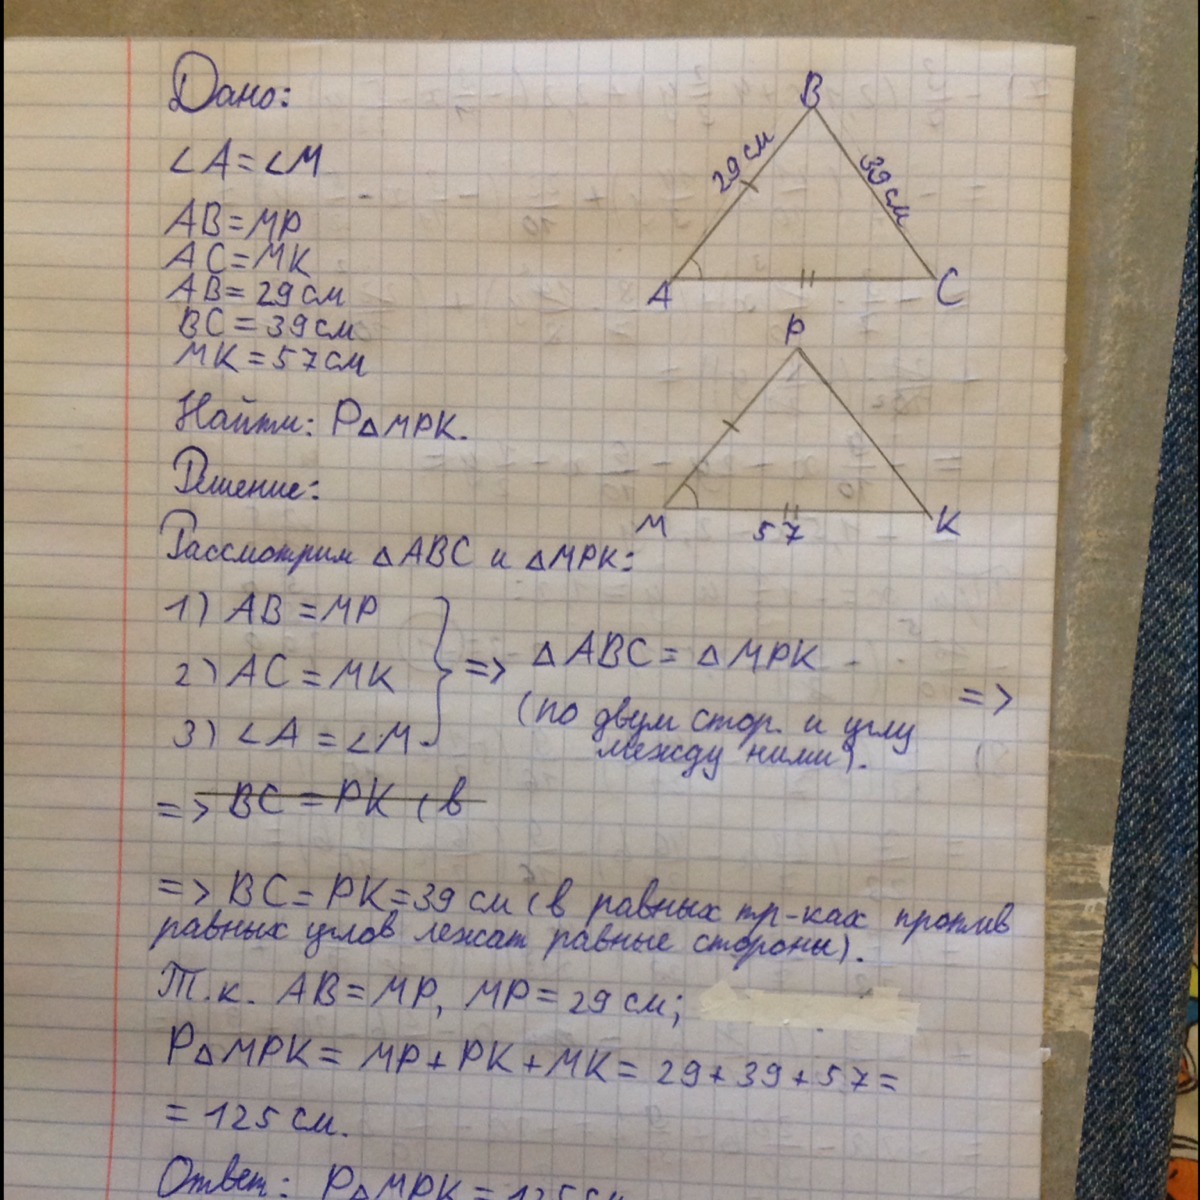 Дано:
∠A = ∠M
AB = MP
AC = MK
AB = 29 см
BC = 39 см
MK = 57 см
Найти: P△MPK.
B
29 см
39 см
A
C
P
M
57
K
Решение:
Рассмотрим △ABC и △MPK:
1) AB = MP
2) AC = MK
3) ∠A = ∠M
=> △ABC = △MPK
(по двум стор. и углу
между ними).
=>
=> BC = PK (в
=> BC = PK = 39 см (в равных тр-ках против
равных углов лежат равные стороны).
Т.к. AB = MP, MP = 29 см;
P△MPK = MP + PK + MK = 29 + 39 + 57 =
= 125 см.
Ответ: P△MPK = 125 см